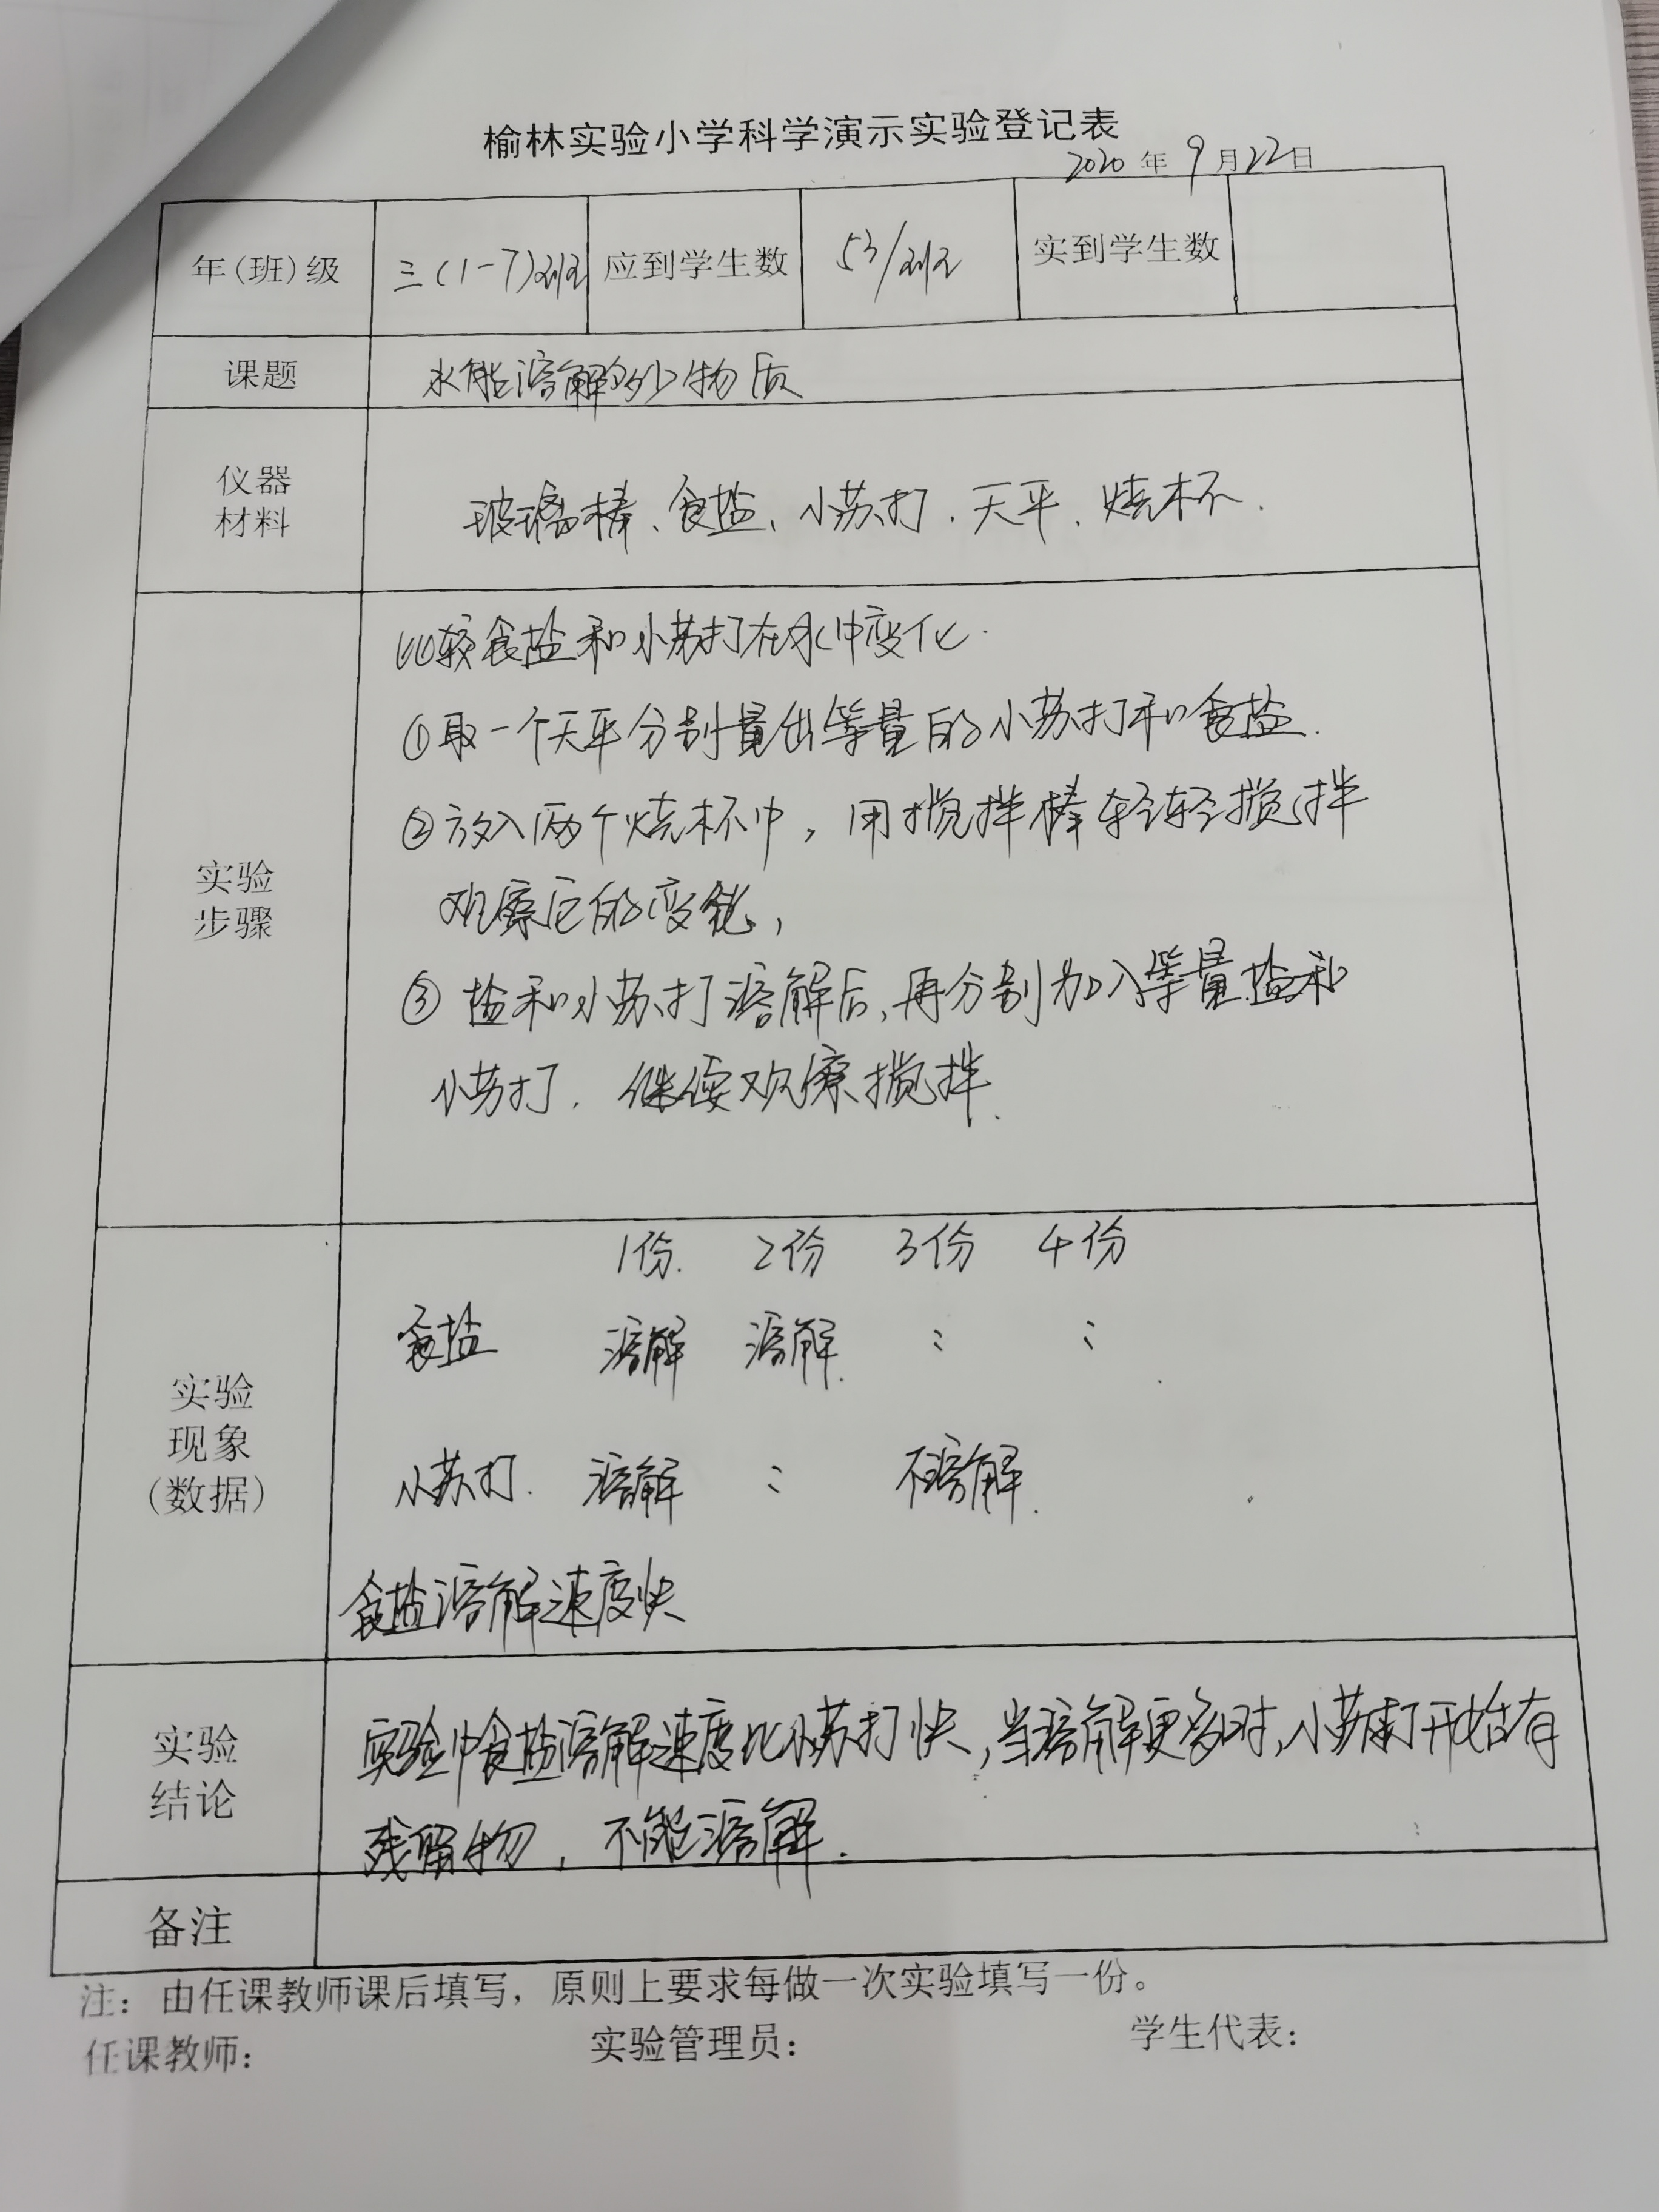 榆林实验小学科学演示实验登记表
2020 年 9 月 22 日
年(班)级 三(1-7)班 应到学生数 53/班 实到学生数
课题 水能溶解多少物质
仪器
材料 玻璃棒、食盐、小苏打、天平、烧杯.
实验
步骤
比较食盐和小苏打在水中变化.
①取一个天平分别量出等量的小苏打和食盐.
②放入两个烧杯中,用搅拌棒轻轻搅拌
观察它的变化,
③ 盐和小苏打溶解后,再分别加入等量盐和
小苏打,继续观察搅拌.
实验
现象
(数据)
1份. 2份 3份 4份
食盐 溶解 溶解. : :
小苏打. 溶解 : 不溶解.
食盐溶解速度快
实验
结论
实验中食盐溶解速度比小苏打快,当溶解更多时,小苏打开始有
残留物,不能溶解.
备注
注:由任课教师课后填写,原则上要求每做一次实验填写一份。
任课教师: 实验管理员: 学生代表: